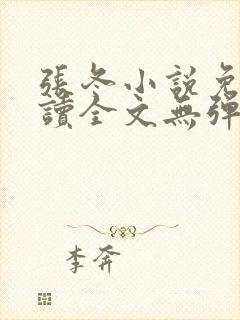 張冬小說免
讀全文無彈
李奔